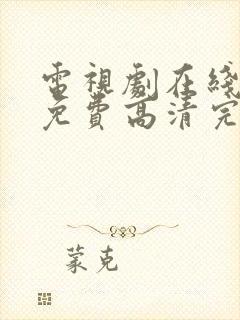 電視劇在綫
免費高清完
蒙克